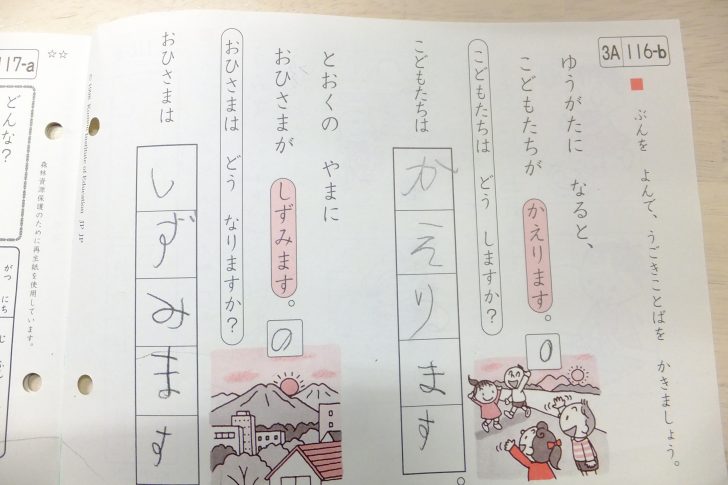 3A 116-b
■ ぶんを よんで、うごきことばを かきましょう。
ゆうがたに なると、
こどもたちが かえります。
こどもたちは どう しますか?
こどもたちは かえります。
とおくの やまに
おひさまが しずみます。
おひさまは どう なりますか?
おひさまは しずみます
117-a
☆☆
どんな?
森林資源保護のために再生紙を使用しています。
がつ にち